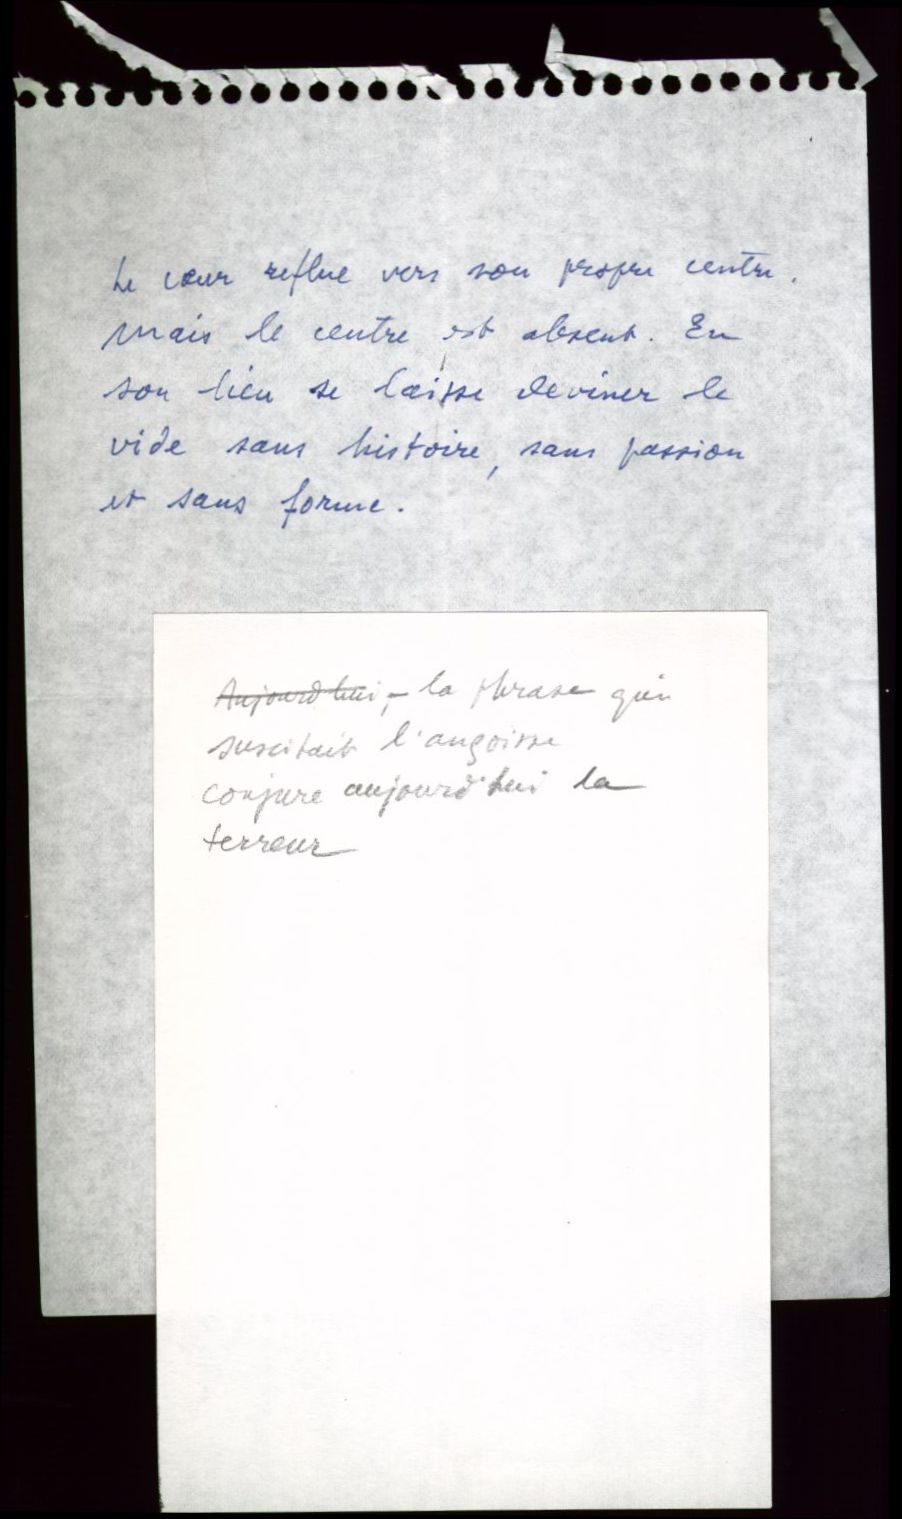 Le cœur reflue vers son propre centre.
Mais le centre est absent. En
son lieu se laisse deviner le
vide sans histoire, sans passion
et sans forme.
Aujourd'hui, – la phrase qui
suscitait l'angoisse
conjure aujourd'hui la
terreur